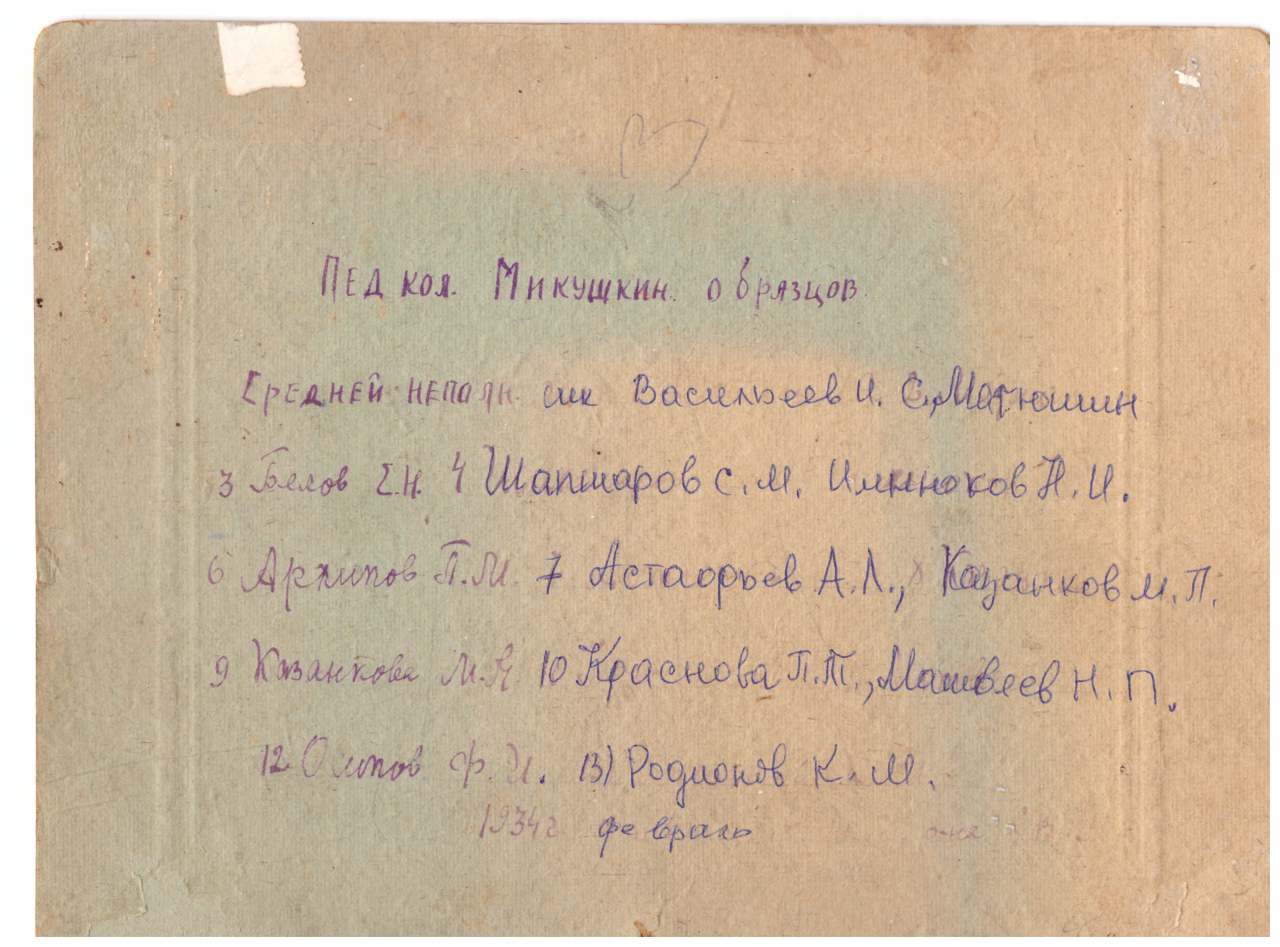 Пед кол. Микушкин. образцов
Средней неполн. шк Васильеев И. С, Матюшин
3 Белов Е.Н. 4 Шапшаров С. М. Илинюков Н. И.
6 Архипов П.М. 7 Астаорьев А. Л., Казанков М. П.
9 Казанкова М.Я. 10 Краснова П.Т., Матвеев Н. П.
12 Осипов Ф. И. 13) Родионов К. М.
1934г февраль